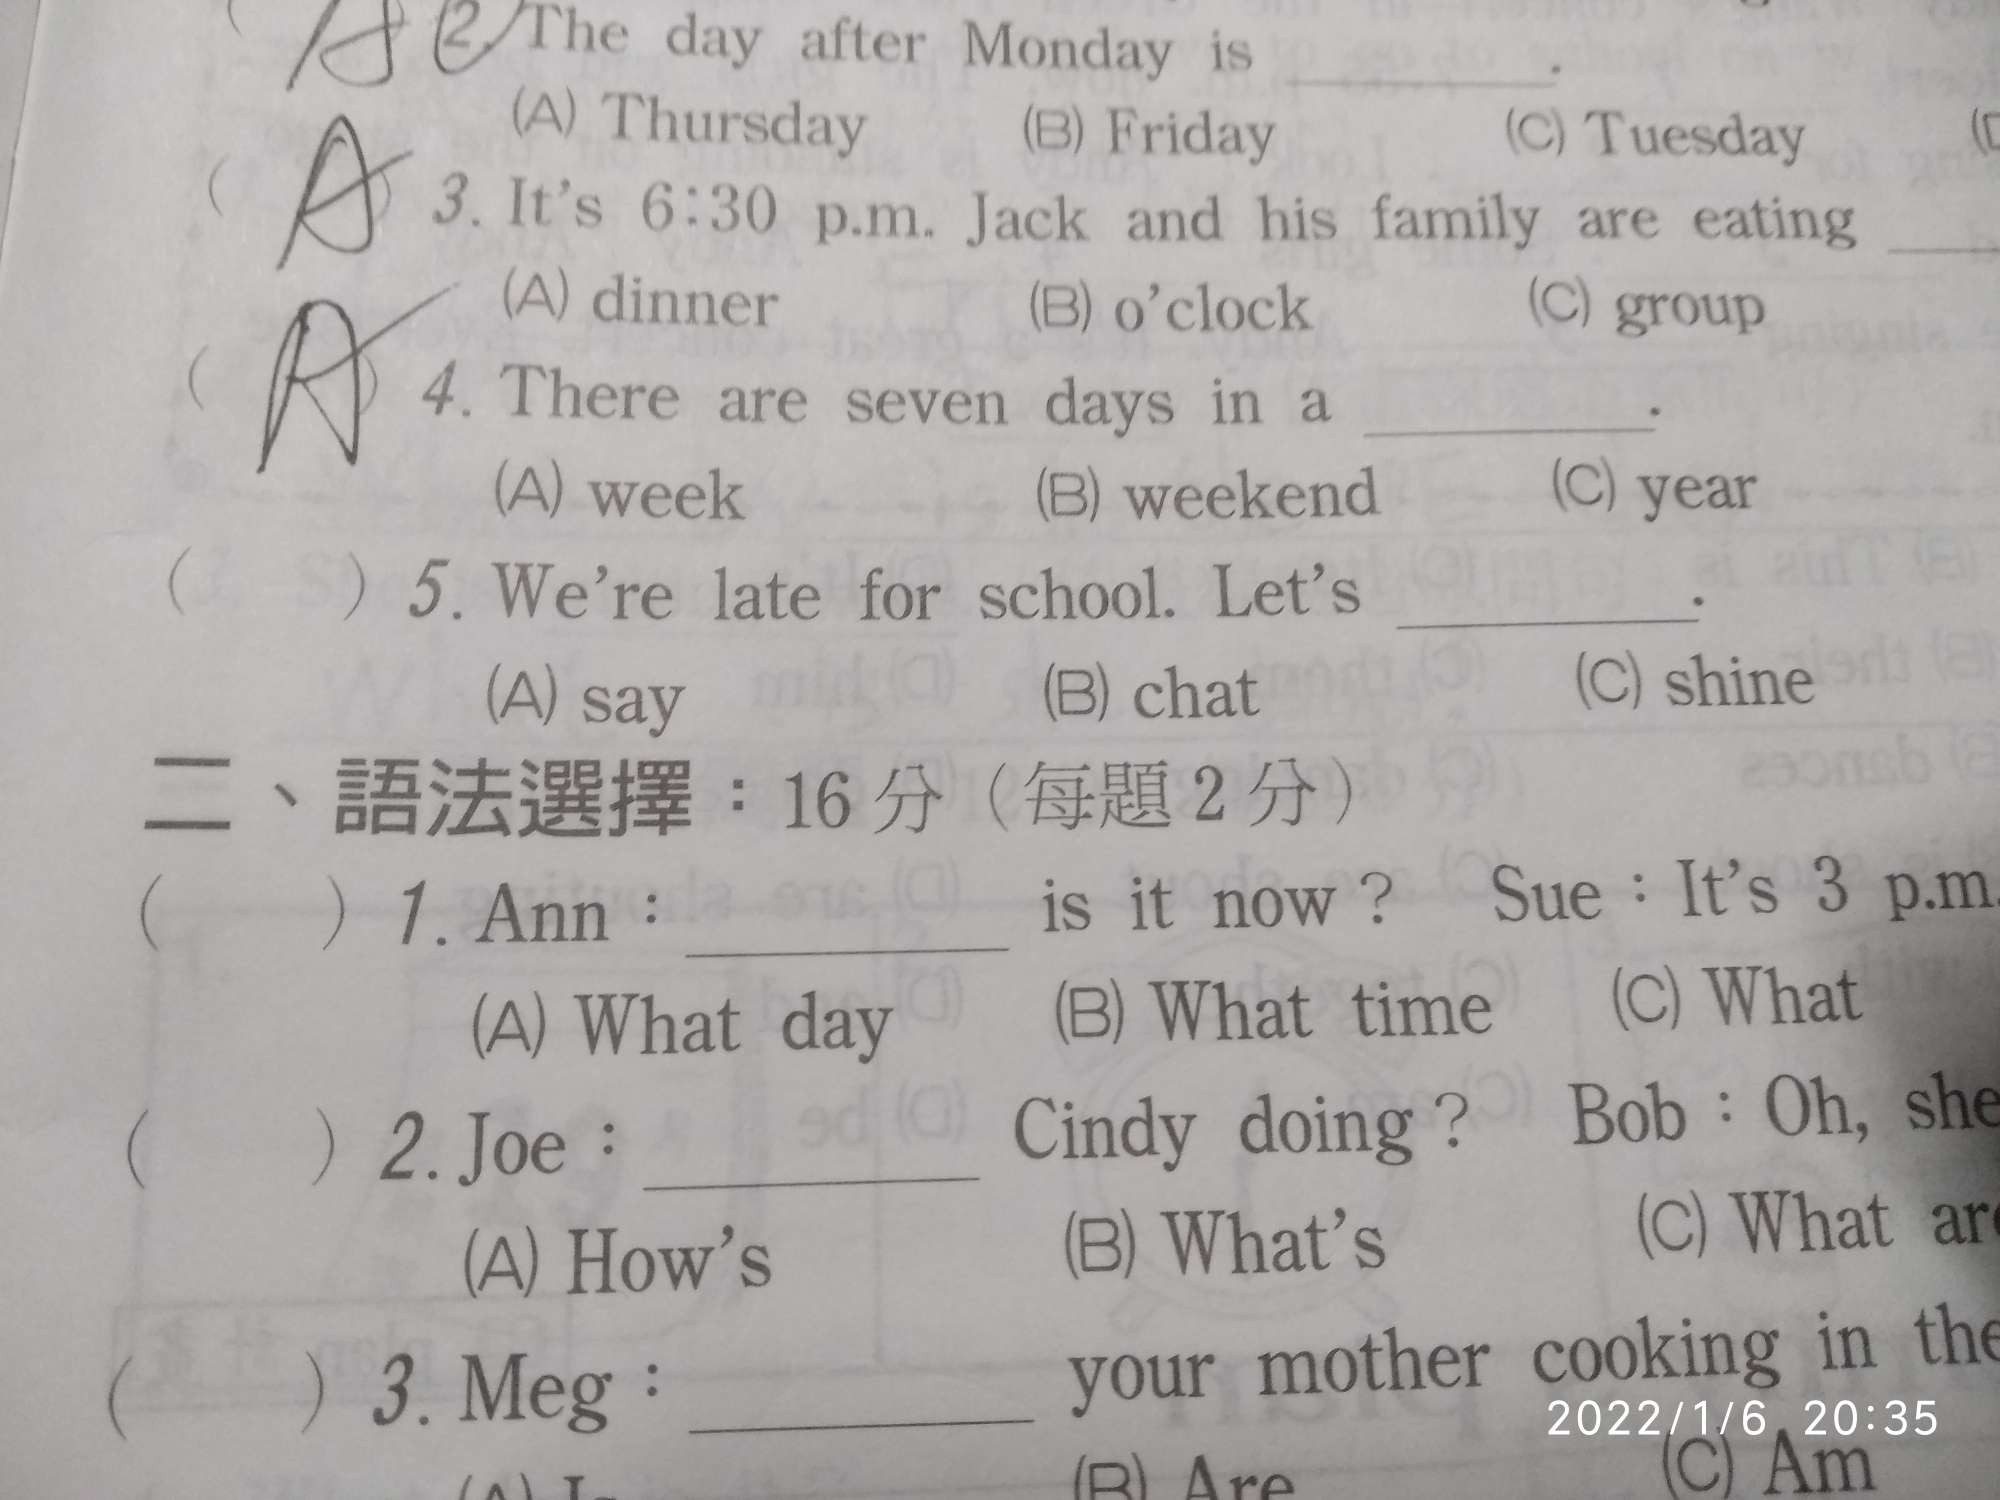 A 2. The day after Monday is ________.
(A) Thursday (B) Friday (C) Tuesday
( A ) 3. It's 6:30 p.m. Jack and his family are eating ____
(A) dinner (B) o'clock (C) group
( A ) 4. There are seven days in a ________.
(A) week (B) weekend (C) year
( ) 5. We're late for school. Let's ________.
(A) say (B) chat (C) shine
二、語法選擇：16 分（每題 2 分）
( ) 1. Ann： ________ is it now？ Sue：It's 3 p.m.
(A) What day (B) What time (C) What
( ) 2. Joe： ________ Cindy doing？ Bob：Oh, she
(A) How's (B) What's (C) What are
( ) 3. Meg： ________ your mother cooking in the
2022/1/6 20:35
(B) Are (C) Am